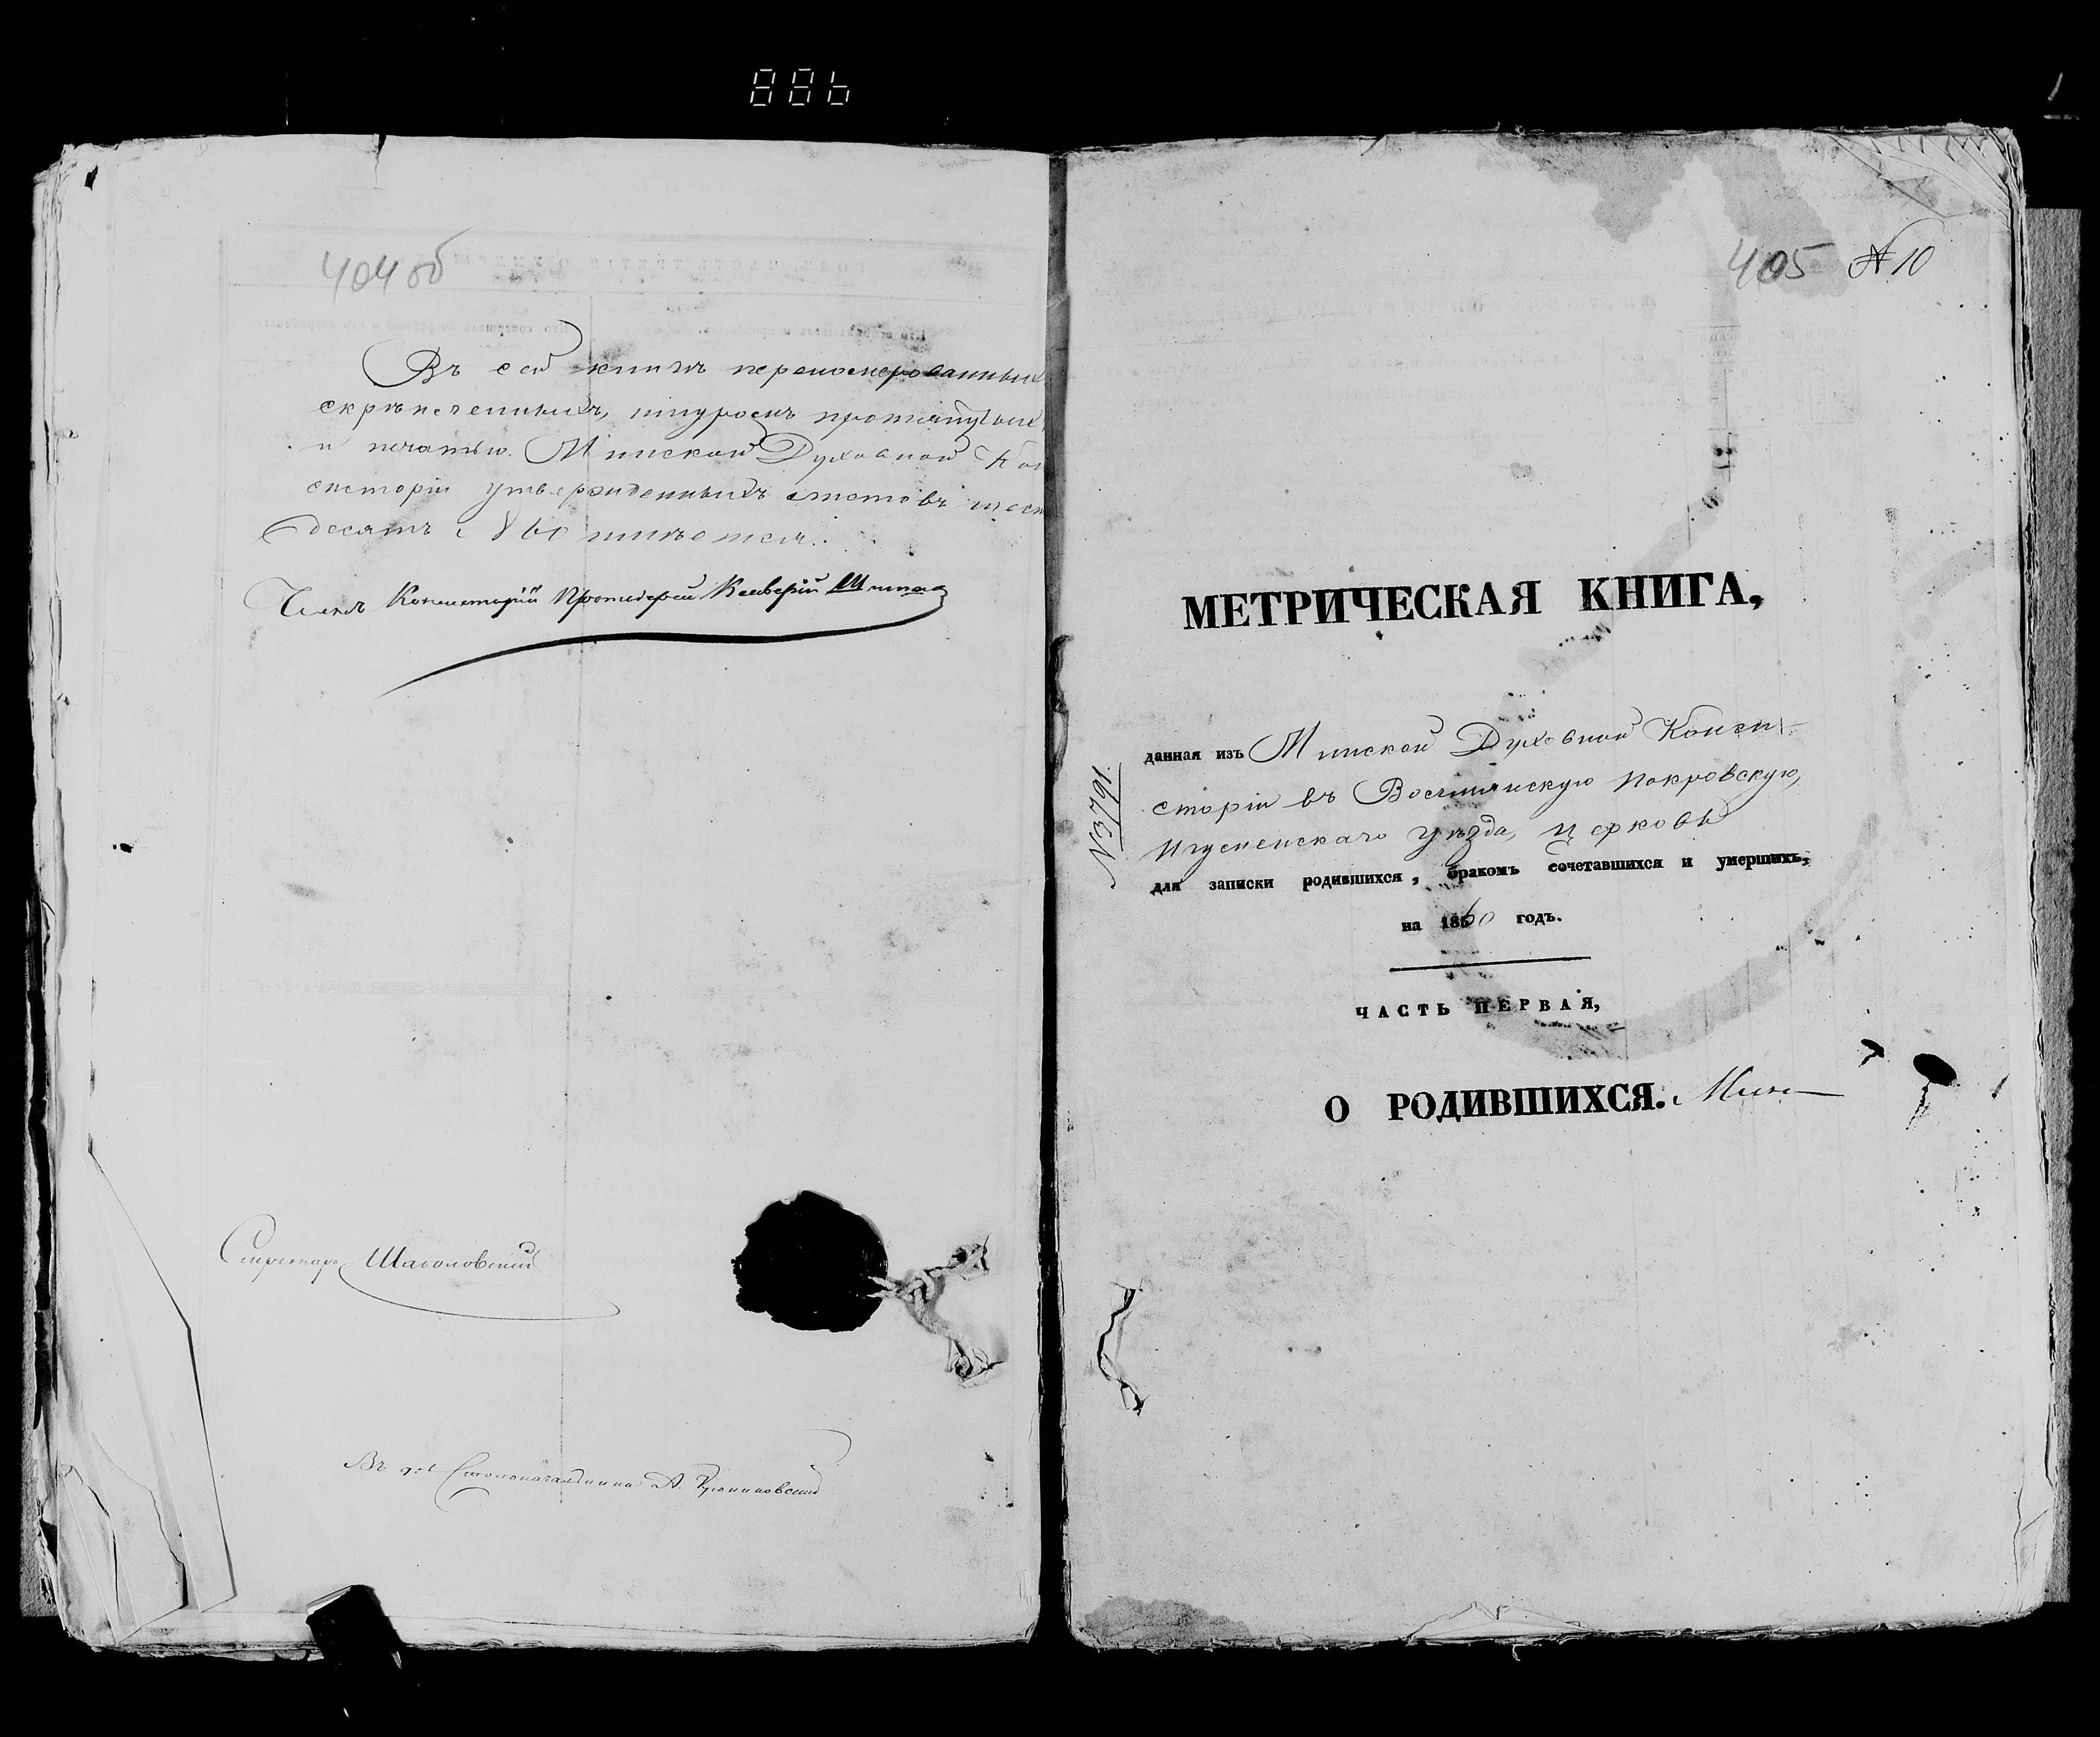 404 об
Въ сей книгѣ перенумерованныхъ
скрѣпленныхъ, шнуромъ протянутых
и печатью Минской Духовной Кон
систоріи утвержденныхъ листовъ шест
десятъ 60 имѣется.
Членъ Консисторіи Протоіерей
Секретарь
Въ д. Столоначальника А.
405 № 10
МЕТРИЧЕСКАЯ КНИГА,
данная изъ Минской Духовной Конси-
сторіи въ Покровскую,
Игуменскаго уѣзда, церковь
для записки родившихся, бракомъ сочетавшихся и умершихъ,
на 1860 годъ.
№ 3791
ЧАСТЬ ПЕРВАЯ,
О РОДИВШИХСЯ.